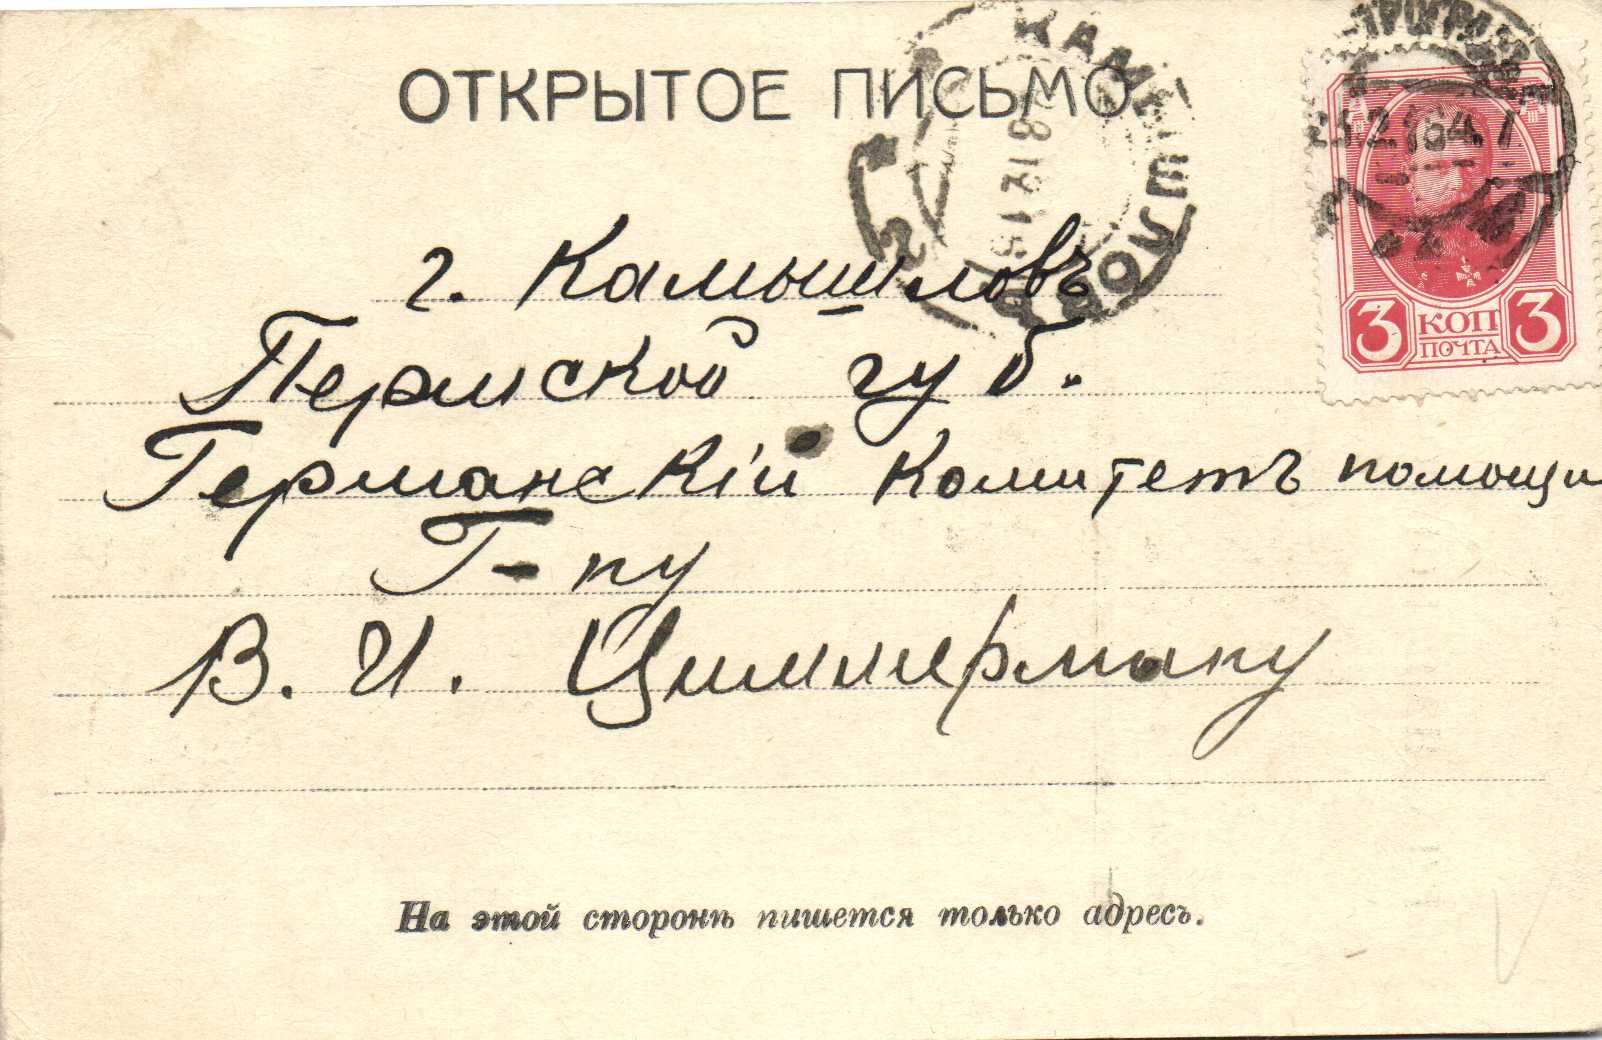 ОТКРЫТОЕ ПИСЬМО
КАМЫШЛОВЪ
3 КОП 3
ПОЧТА
г. Камышловъ
Пермской губ.
Германскій Комитетъ помощи
Г-ну
В. И. Циммерману
На этой сторонѣ пишется только адресъ.